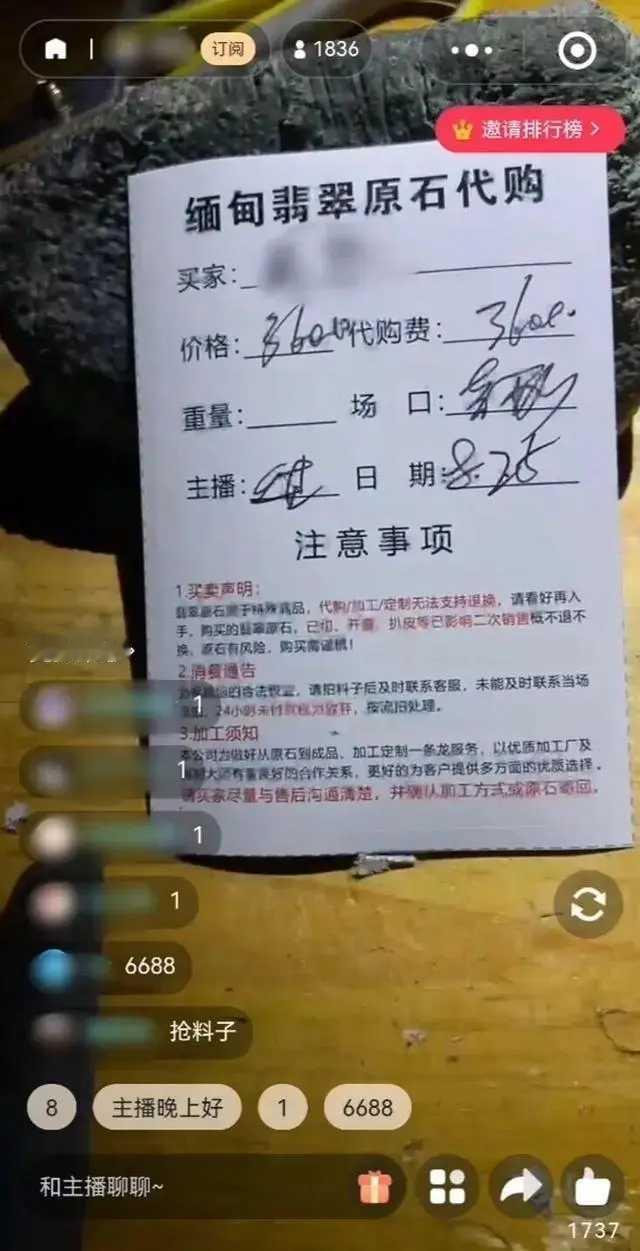 订阅
1836
邀请排行榜 >
缅甸翡翠原石代购
买家:
价格: 3600 代购费: 3600.
重量: 场 口:
主播: 日 期: 8.25
注意事项
1.买卖声明:
翡翠原石属于特殊商品，代购/加工/定制无法支持退换，请看好再入
手，购买的翡翠原石，已切、开窗、扒皮等已影响二次销售概不退不
换。原石有风险，购买需谨慎!
2.消费通告
请拍料子后及时联系客服，未能及时联系当场
24小时未付款视为放弃，按流拍处理。
3.加工须知
本公司为做好从原石到成品、加工定制一条龙服务，以优质加工厂及
大师有着良好的合作关系，更好的为客户提供多方面的优质选择。
请买家尽量与售后沟通清楚，并确认加工方式或原石寄回。
1
1
1
1
6688
抢料子
8
主播晚上好
1
6688
和主播聊聊~
1737